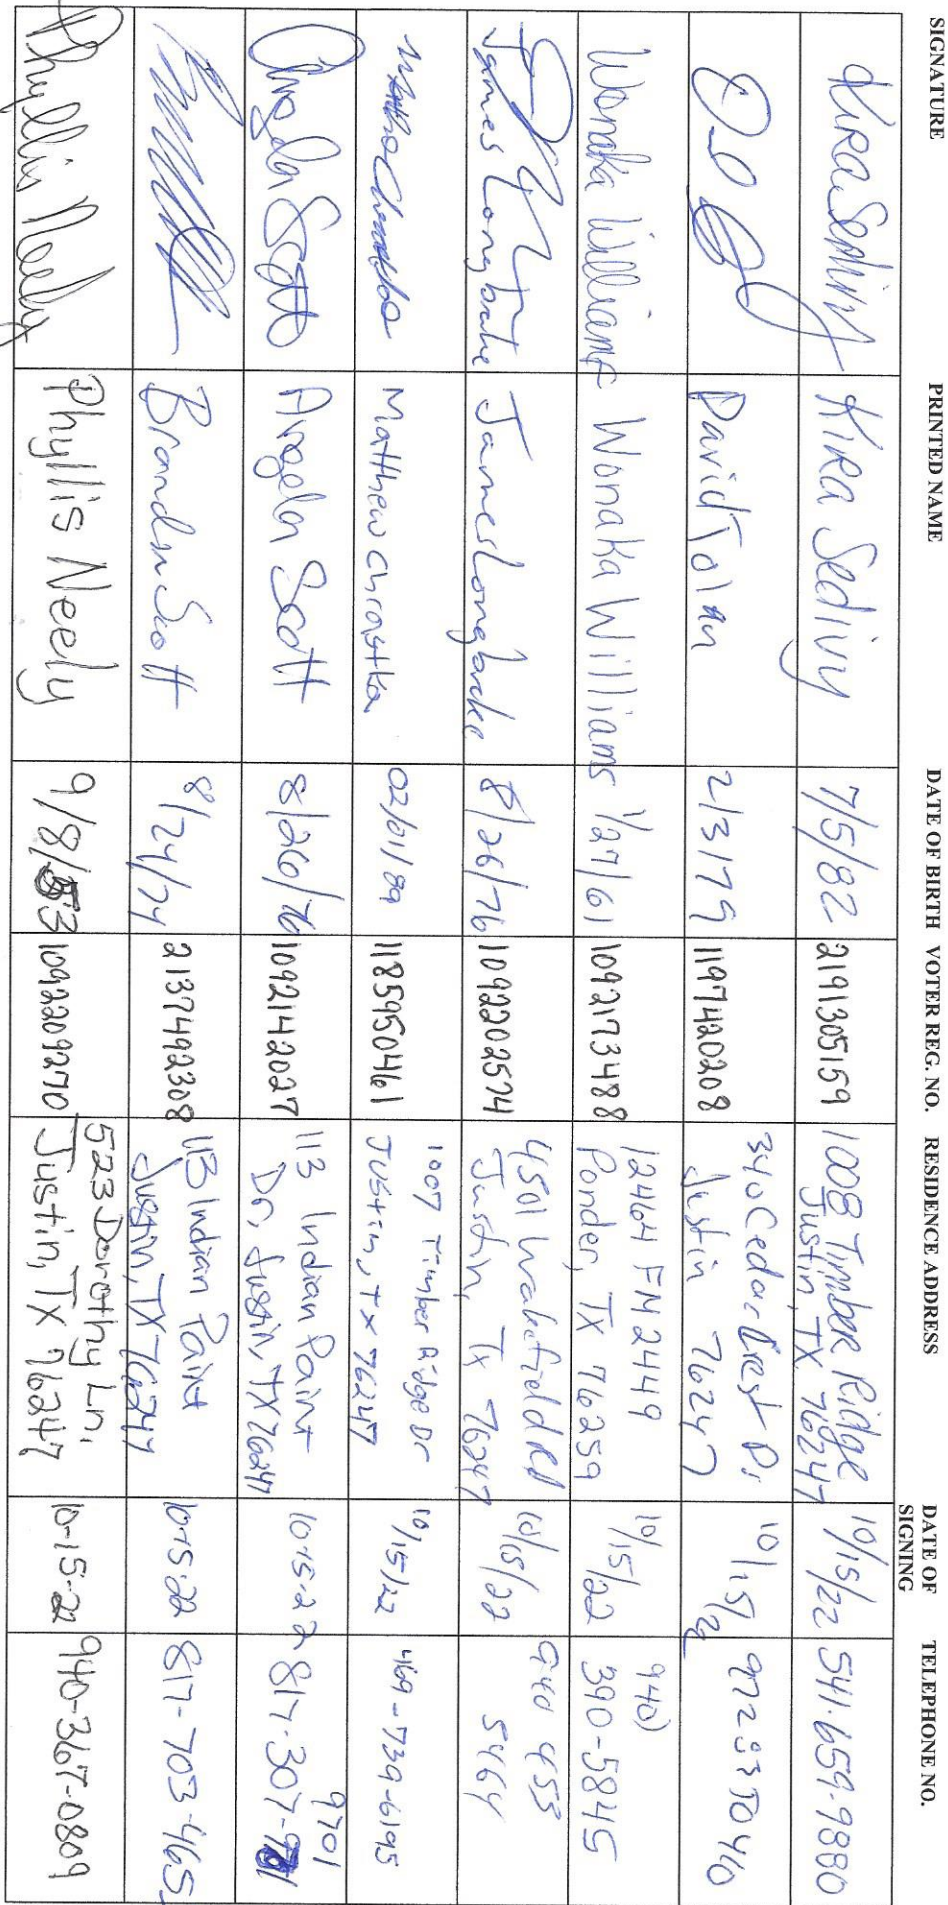 SIGNATURE PRINTED NAME DATE OF BIRTH VOTER REG. NO. RESIDENCE ADDRESS DATE OF SIGNING TELEPHONE NO.
Kira Sedivy Kira Sedivy 7/5/82 2191305159 1008 Timber Ridge Justin, TX 76247 10/15/22 541-659-9880
David Tolan 2/3/79 1197420208 340 Cedar Crest Dr Justin 76247 10/15/22
Wonaka Williams Wonaka Williams 1/27/61 1092173488 12464 FM 2449 Ponder, TX 76259 10/15/22 940) 390-5845
James Longbrake James Longbrake 8/26/76 1092202574 4501 Wakefield Rd Justin, Tx 76247 10/15/22 940 453 5464
Matthew Chrastka 02/01/89 1185950461 1007 Timber Ridge Dr Justin, Tx 76247 10/15/22 469-739-6195
Angela Scott Angela Scott 8/26/76 1092142027 113 Indian Paint Dr, Justin, TX 76247 10-15-22 817-307-9701 9701
Brandon Scott 8/24/74 2137492308 113 Indian Paint Justin, TX 76247 10-15-22 817-703-465
Phyllis Neely Phyllis Neely 9/8/53 1092209270 523 Dorothy Ln, Justin, TX 76247 10-15-22 940-367-0809